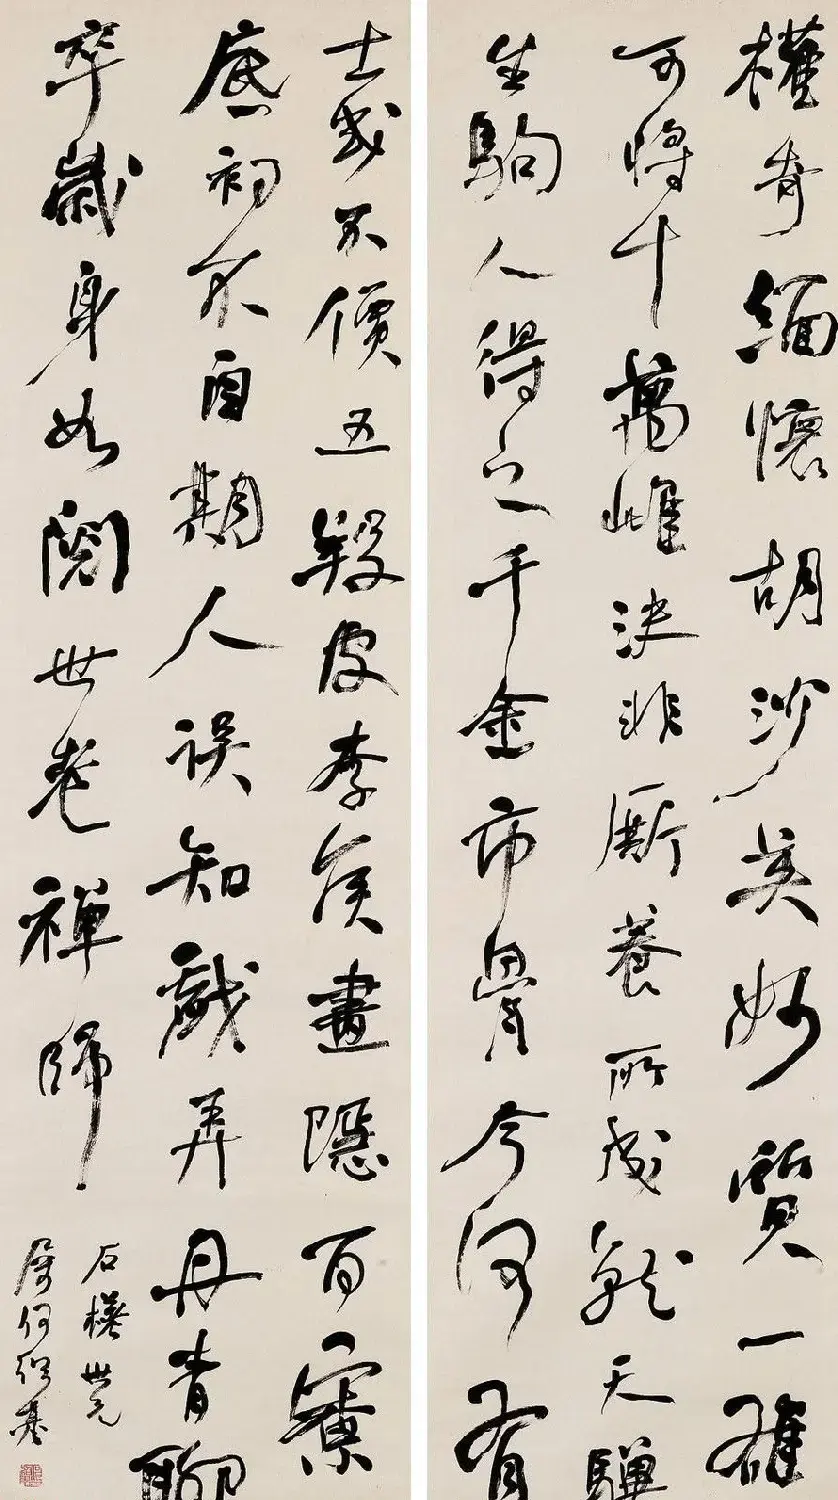 權奇緬懷胡沙英妙質一雄
可將十萬雌決非廝養所成就天驥
生駒人得之千金市骨今何有
士或不價五羖皮李侯畫隱百寮
底初不自期人誤知戲弄丹青聊
卒歲身如閱世老禪師
石樵世兄
屬何紹基